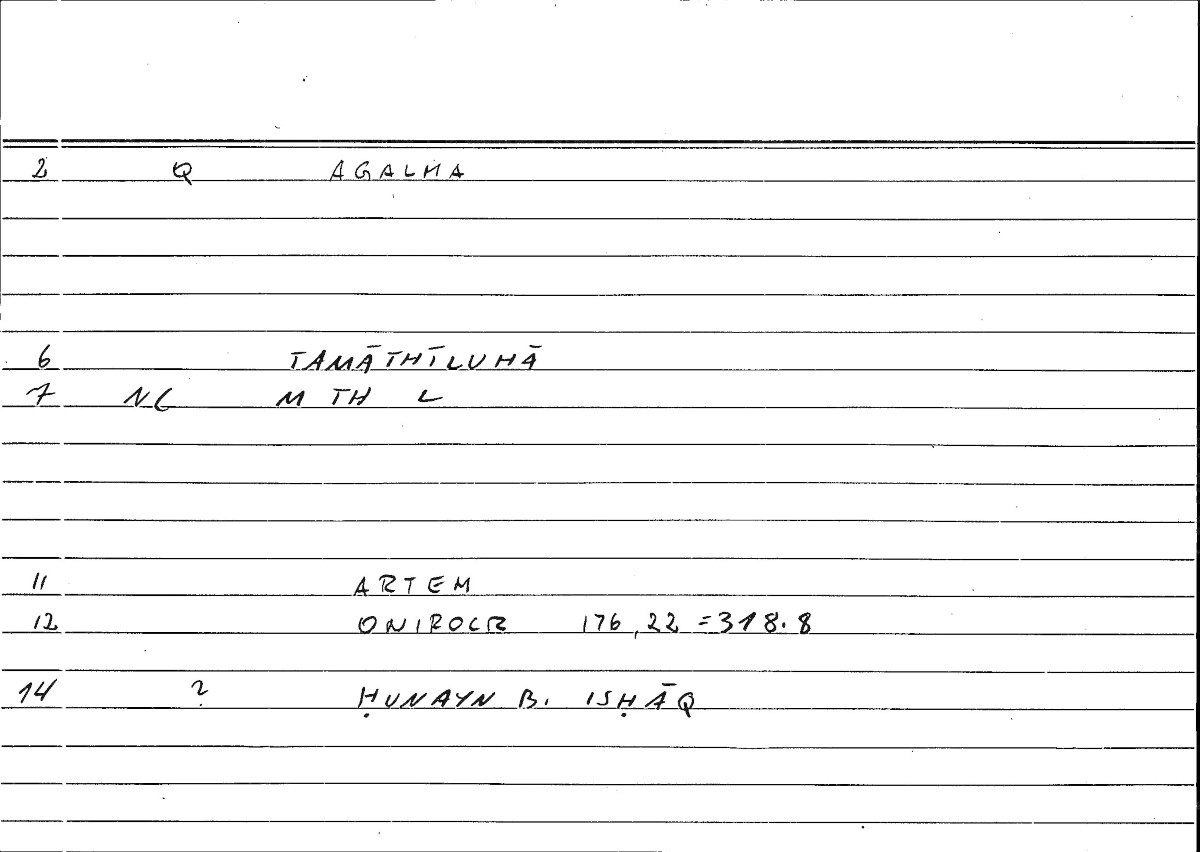 2 Q AGALMA
6 TAMĀTHĪLUHĀ
7 NC M TH L
11 ARTEM
12 ONIROCR 176,22 =318.8
14 ? ḤUNAYN B. ISḤĀQ